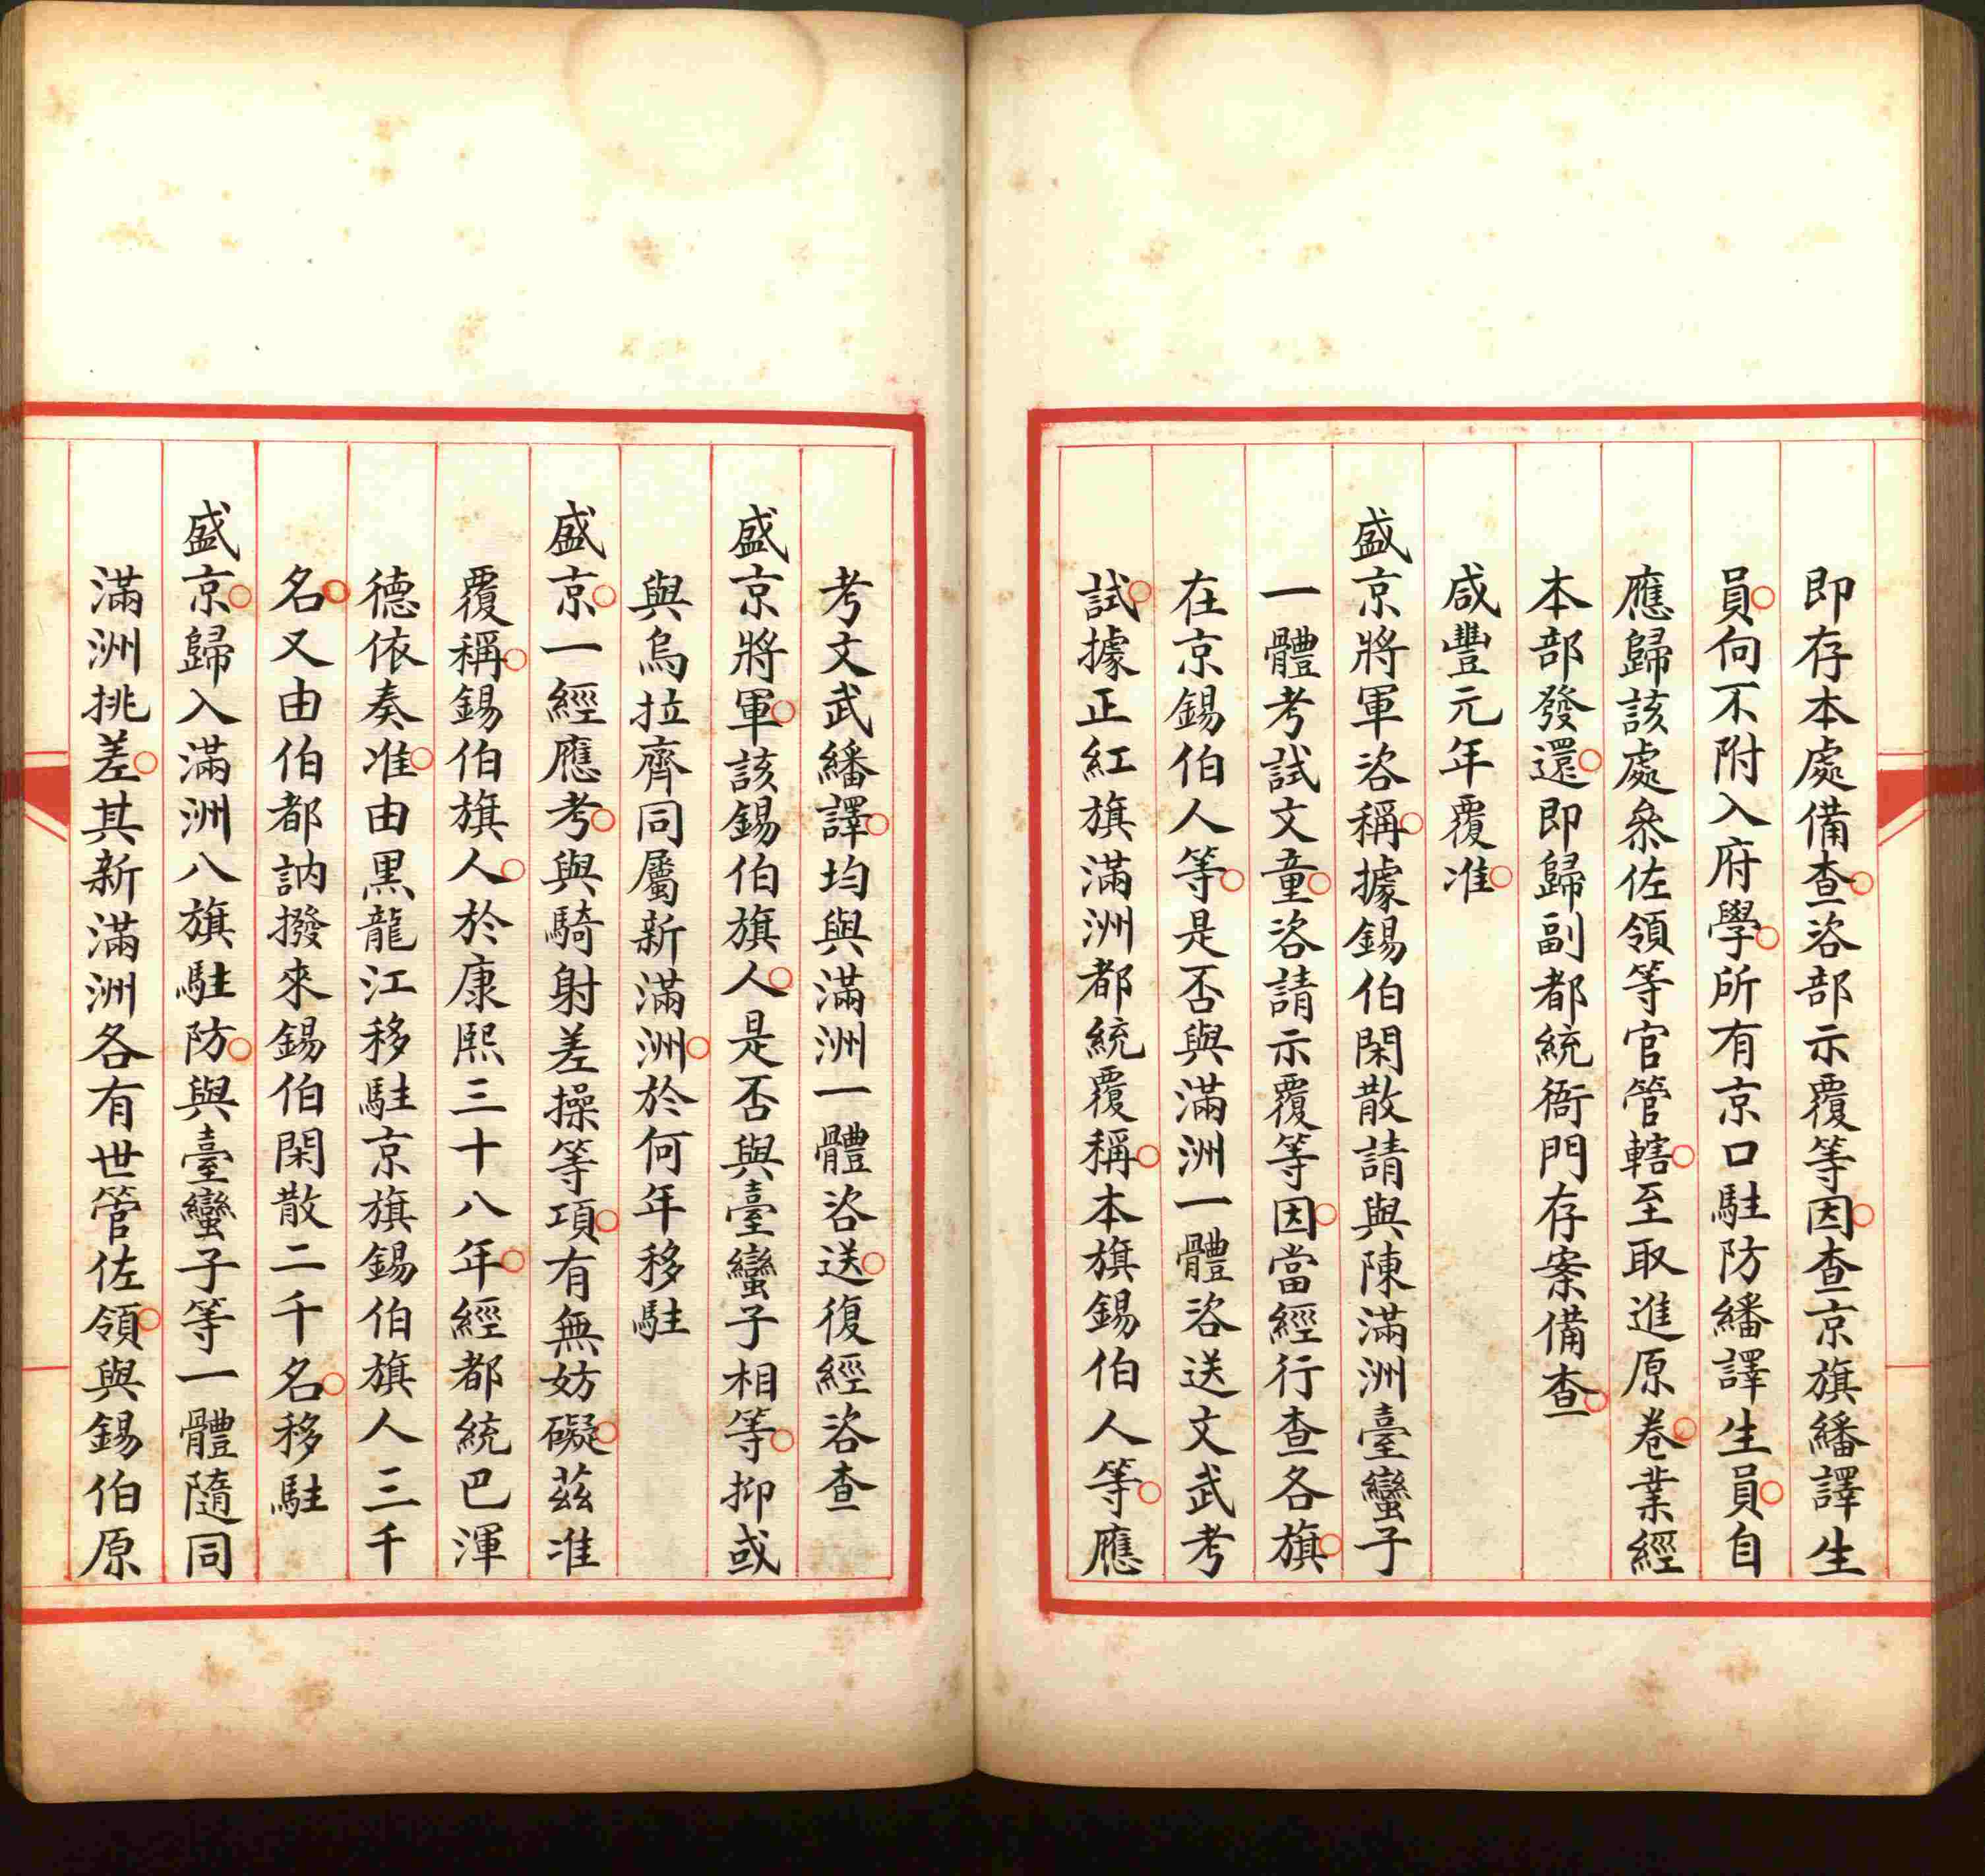 即存本處備查咨部示覆等因查京旗繙譯生
員向不附入府學所有京口駐防繙譯生員自
應歸該處叅佐領等官管轄至取進原卷業經
本部發還即歸副都統衙門存案備查
咸豐元年覆准
盛京將軍咨稱據錫伯閑散請與陳滿洲臺蠻子
一體考試文童咨請示覆等因當經行查各旗
在京錫伯人等是否與滿洲一體咨送文武考
試據正紅旗滿洲都統覆稱本旗錫伯人等應
考文武繙譯均與滿洲一體咨送復經咨查
盛京將軍該錫伯旗人是否與臺蠻子相等抑或
與烏拉齊同屬新滿洲於何年移駐
盛京一經應考與騎射差操等項有無妨礙茲准
覆稱錫伯旗人於康熙三十八年經都統巴渾
德依奏准由黑龍江移駐京旗錫伯旗人三千
名又由伯都訥撥來錫伯閑散二千名移駐
盛京歸入滿洲八旗駐防與臺蠻子等一體隨同
滿洲挑差其新滿洲各有世管佐領與錫伯原